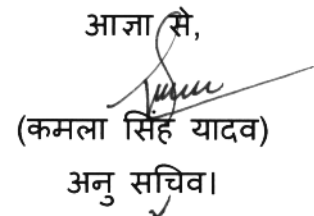 आज्ञा से,
(कमला सिंह यादव)
अनु सचिव।